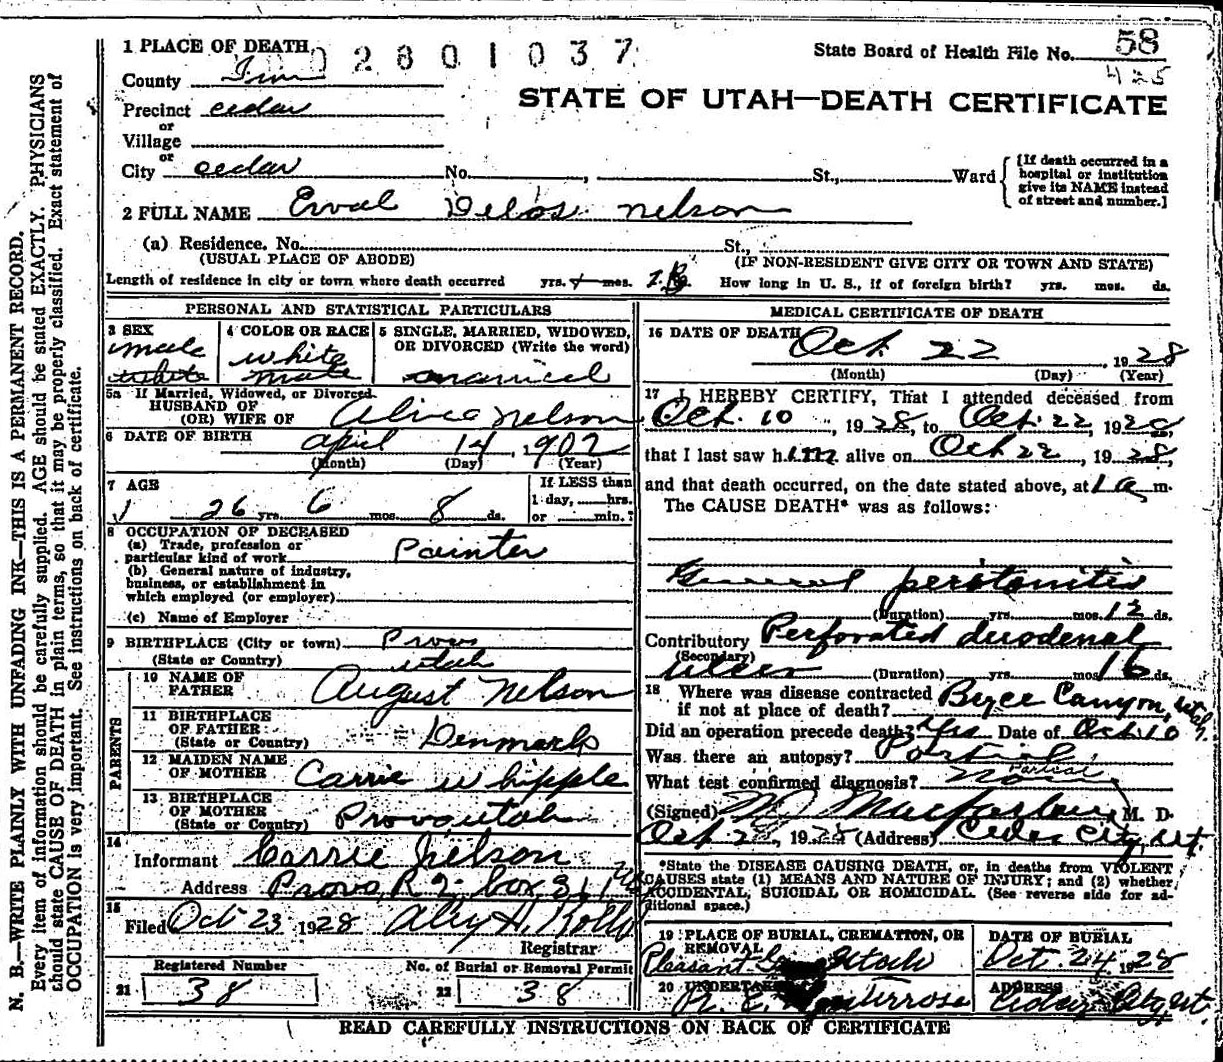 1 PLACE OF DEATH 0 2801037
State Board of Health File No. 58
425
County Iron
STATE OF UTAH—DEATH CERTIFICATE
Precinct cedar
or
Village
or
City cedar No. , St., Ward
[If death occurred in a
hospital or institution
give its NAME instead
of street and number.]
2 FULL NAME Erval Delos nelson
(a) Residence. No. St.,
(USUAL PLACE OF ABODE) (IF NON-RESIDENT GIVE CITY OR TOWN AND STATE)
Length of residence in city or town where death occurred yrs. mos. How long in U. S., if of foreign birth? yrs. mos. ds.
PERSONAL AND STATISTICAL PARTICULARS
3 SEX
male
white
4 COLOR OR RACE
white
male
5 SINGLE, MARRIED, WIDOWED,
OR DIVORCED (Write the word)
married
5a If Married, Widowed, or Divorced
HUSBAND OF
(OR) WIFE OF Alice Nelson
6 DATE OF BIRTH april 14, 1902
(Month) (Day) (Year)
7 AGE
26 yrs. 6 mos. 8 ds.
If LESS than
1 day, hrs.
or min.?
8 OCCUPATION OF DECEASED
(a) Trade, profession or
particular kind of work Painter
(b) General nature of industry,
business, or establishment in
which employed (or employer)
(c) Name of Employer
9 BIRTHPLACE (City or town) Provo
(State or Country) utah
PARENTS
10 NAME OF
FATHER August Nelson
11 BIRTHPLACE
OF FATHER
(State or Country) Denmark
12 MAIDEN NAME
OF MOTHER Carrie whipple
13 BIRTHPLACE
OF MOTHER
(State or Country) Provo utah
14
Informant Carrie Nelson
Address Provo, R 2 box 311
15
Filed Oct 23 1928
Registrar
Registered Number
21 38
No. of Burial or Removal Permit
22 38
MEDICAL CERTIFICATE OF DEATH
16 DATE OF DEATH Oct. 22, 1928
(Month) (Day) (Year)
17 I HEREBY CERTIFY, That I attended deceased from
Oct. 10, 1928, to Oct. 22, 1928,
that I last saw him alive on Oct 22, 1928,
and that death occurred, on the date stated above, at 1 a m.
The CAUSE DEATH* was as follows:
General peritonitis
(Duration) yrs. mos. 12 ds.
Contributory Perforated duodenal
(Secondary)
ulcer (Duration) yrs. mos. 16 ds.
18 Where was disease contracted
if not at place of death? Bryce Canyon, Utah
Did an operation precede death? Yes Date of Oct. 10
Was there an autopsy? Partial
What test confirmed diagnosis? No Partial
(Signed) Macfarlane, M. D.
Oct 1928 (Address) Cedar City, Ut.
*State the DISEASE CAUSING DEATH, or, in deaths from VIOLENT
CAUSES state (1) MEANS AND NATURE OF INJURY; and (2) whether
ACCIDENTAL, SUICIDAL OR HOMICIDAL. (See reverse side for ad-
ditional space.)
19 PLACE OF BURIAL, CREMATION, OR
REMOVAL
Pleasant Utah
DATE OF BURIAL
Oct. 24, 1928
20 UNDERTAKER
ADDRESS
READ CAREFULLY INSTRUCTIONS ON BACK OF CERTIFICATE
N. B.—WRITE PLAINLY WITH UNFADING INK—THIS IS A PERMANENT RECORD.
Every item of information should be carefully supplied. AGE should be stated EXACTLY. PHYSICIANS
should state CAUSE OF DEATH in plain terms, so that it may be properly classified. Exact statement of
OCCUPATION is very important. See instructions on back of certificate.